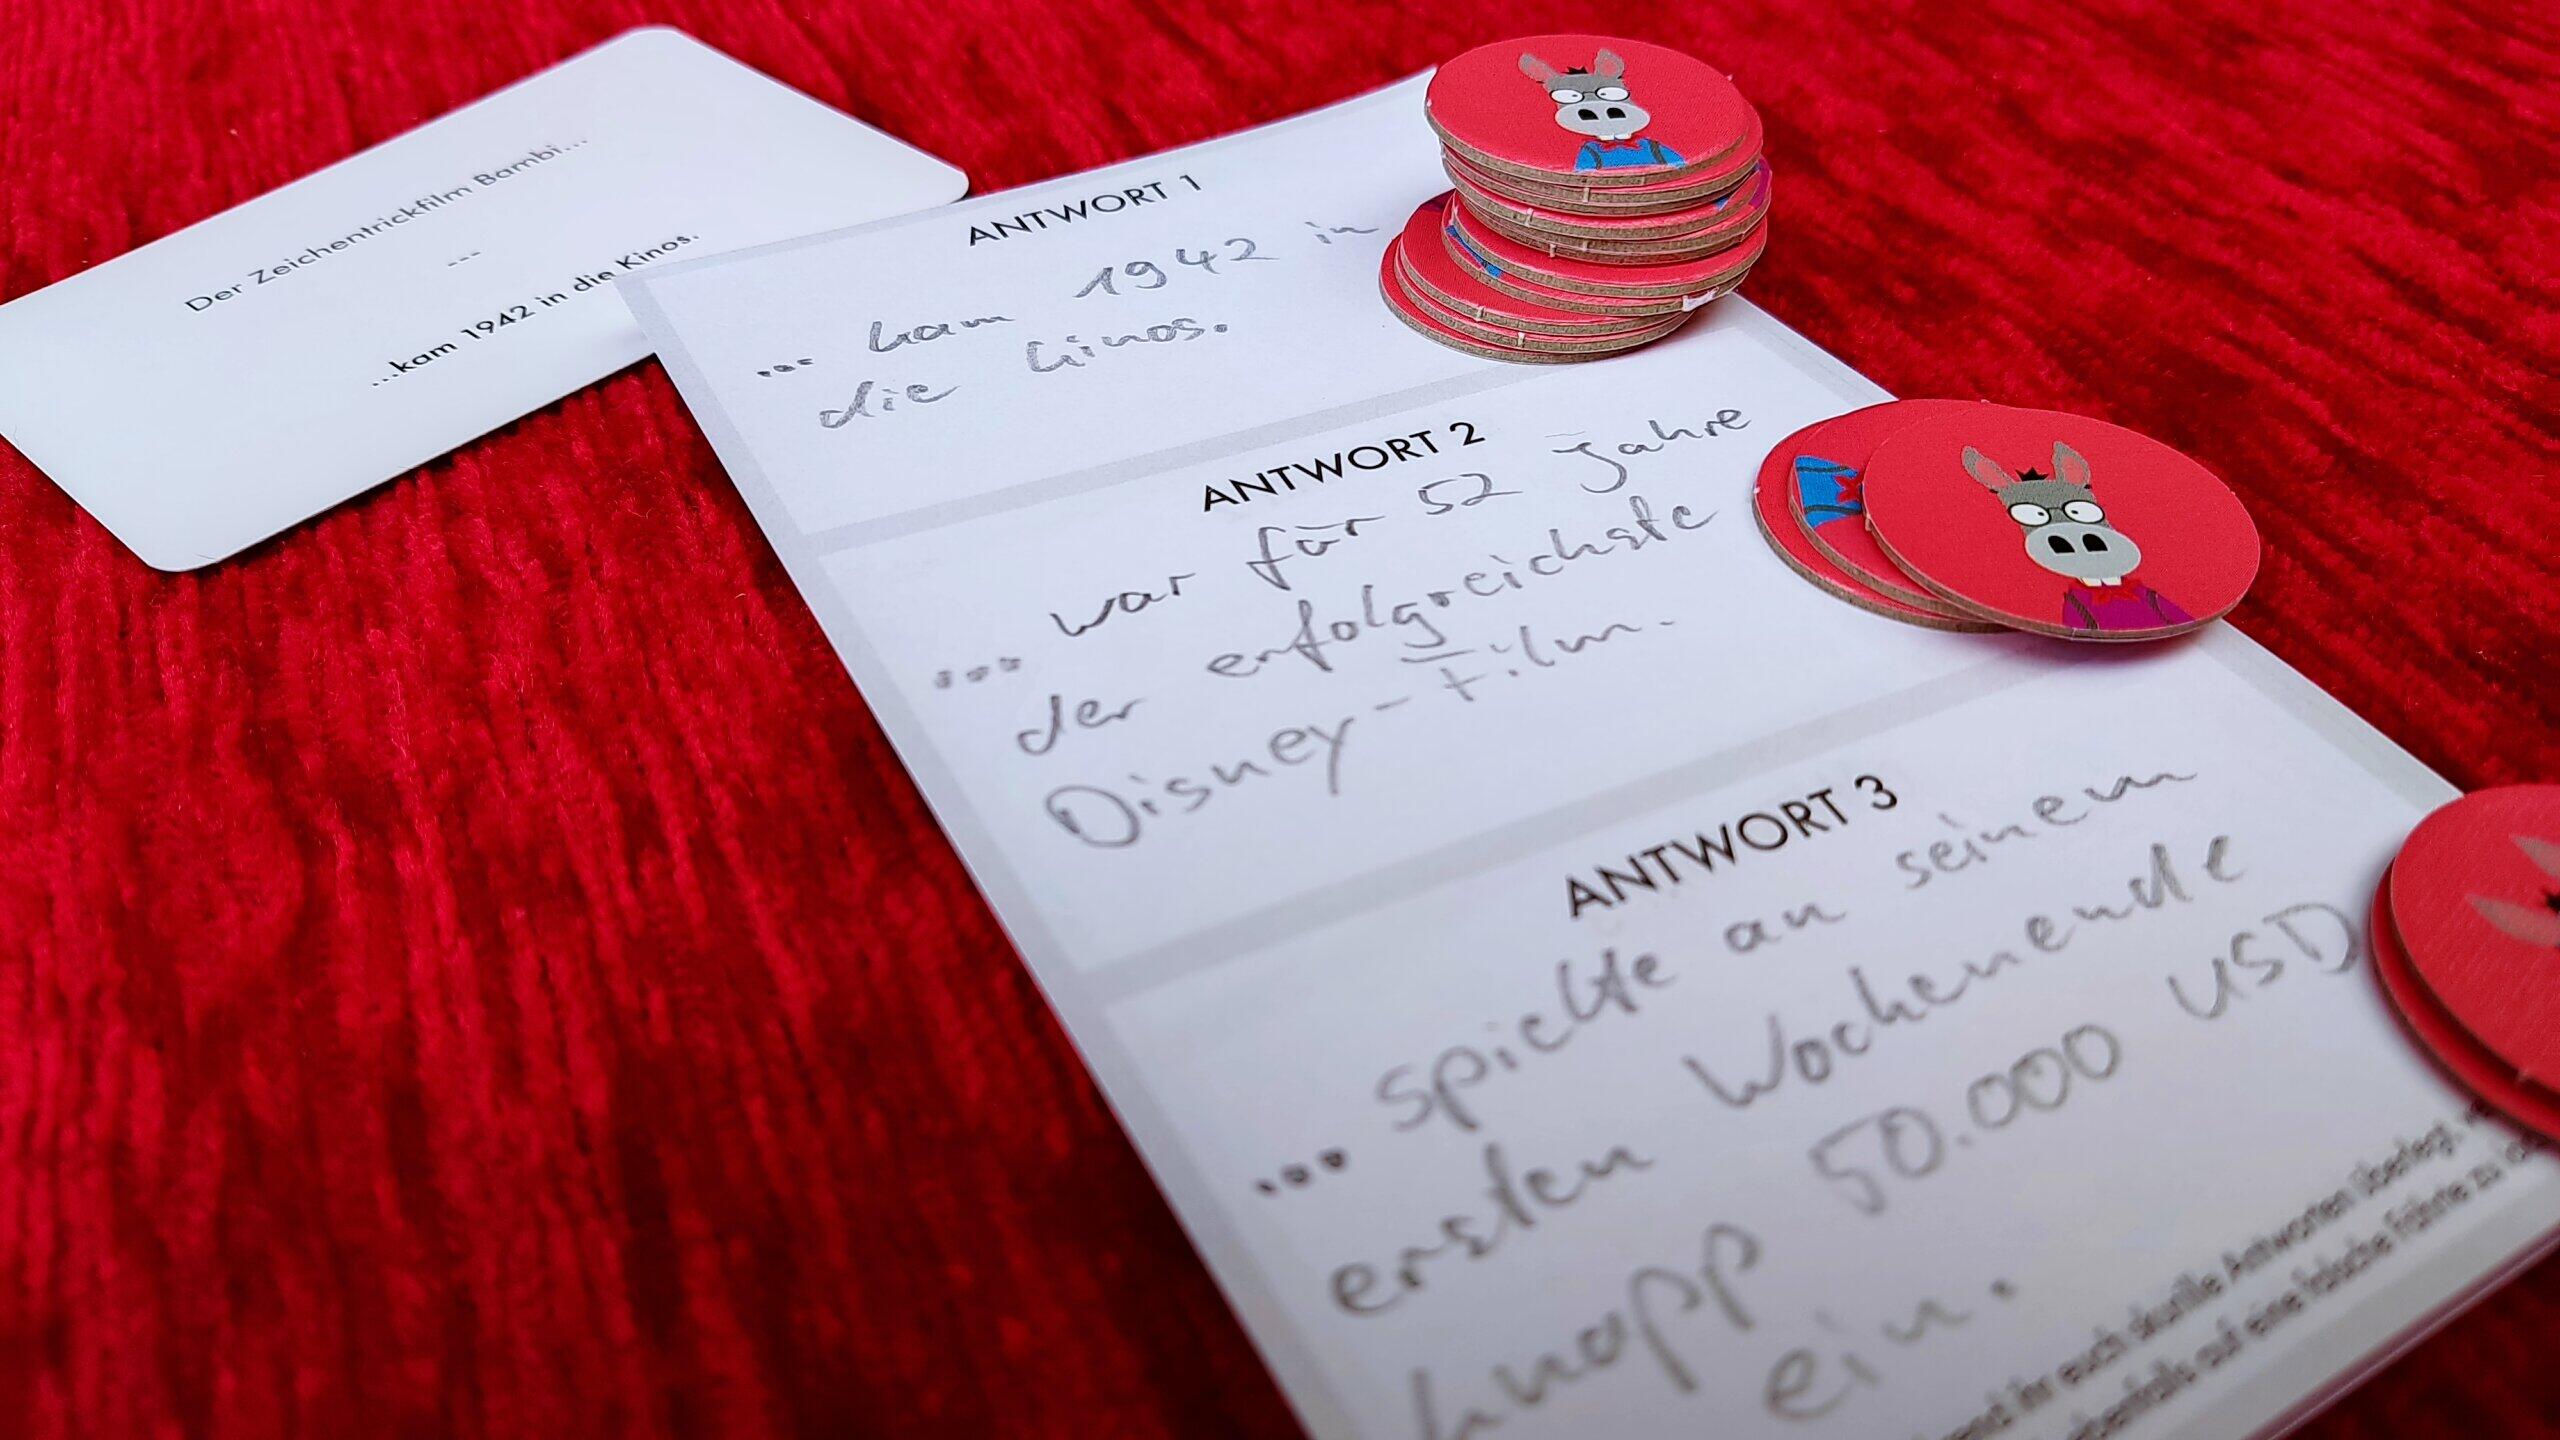 Der Zeichentrickfilm Bambi...
---
...kam 1942 in die Kinos.
ANTWORT 1
... kam 1942 in
die Kinos.
ANTWORT 2
... war für 52 Jahre
der erfolgreichste
Disney-Film.
ANTWORT 3
... spielte an seinem
ersten Wochenende
knapp 50.000 USD
ein.
ihr auch skurrile Antworten überlegt,
ebenfalls auf eine falsche Fährte zu